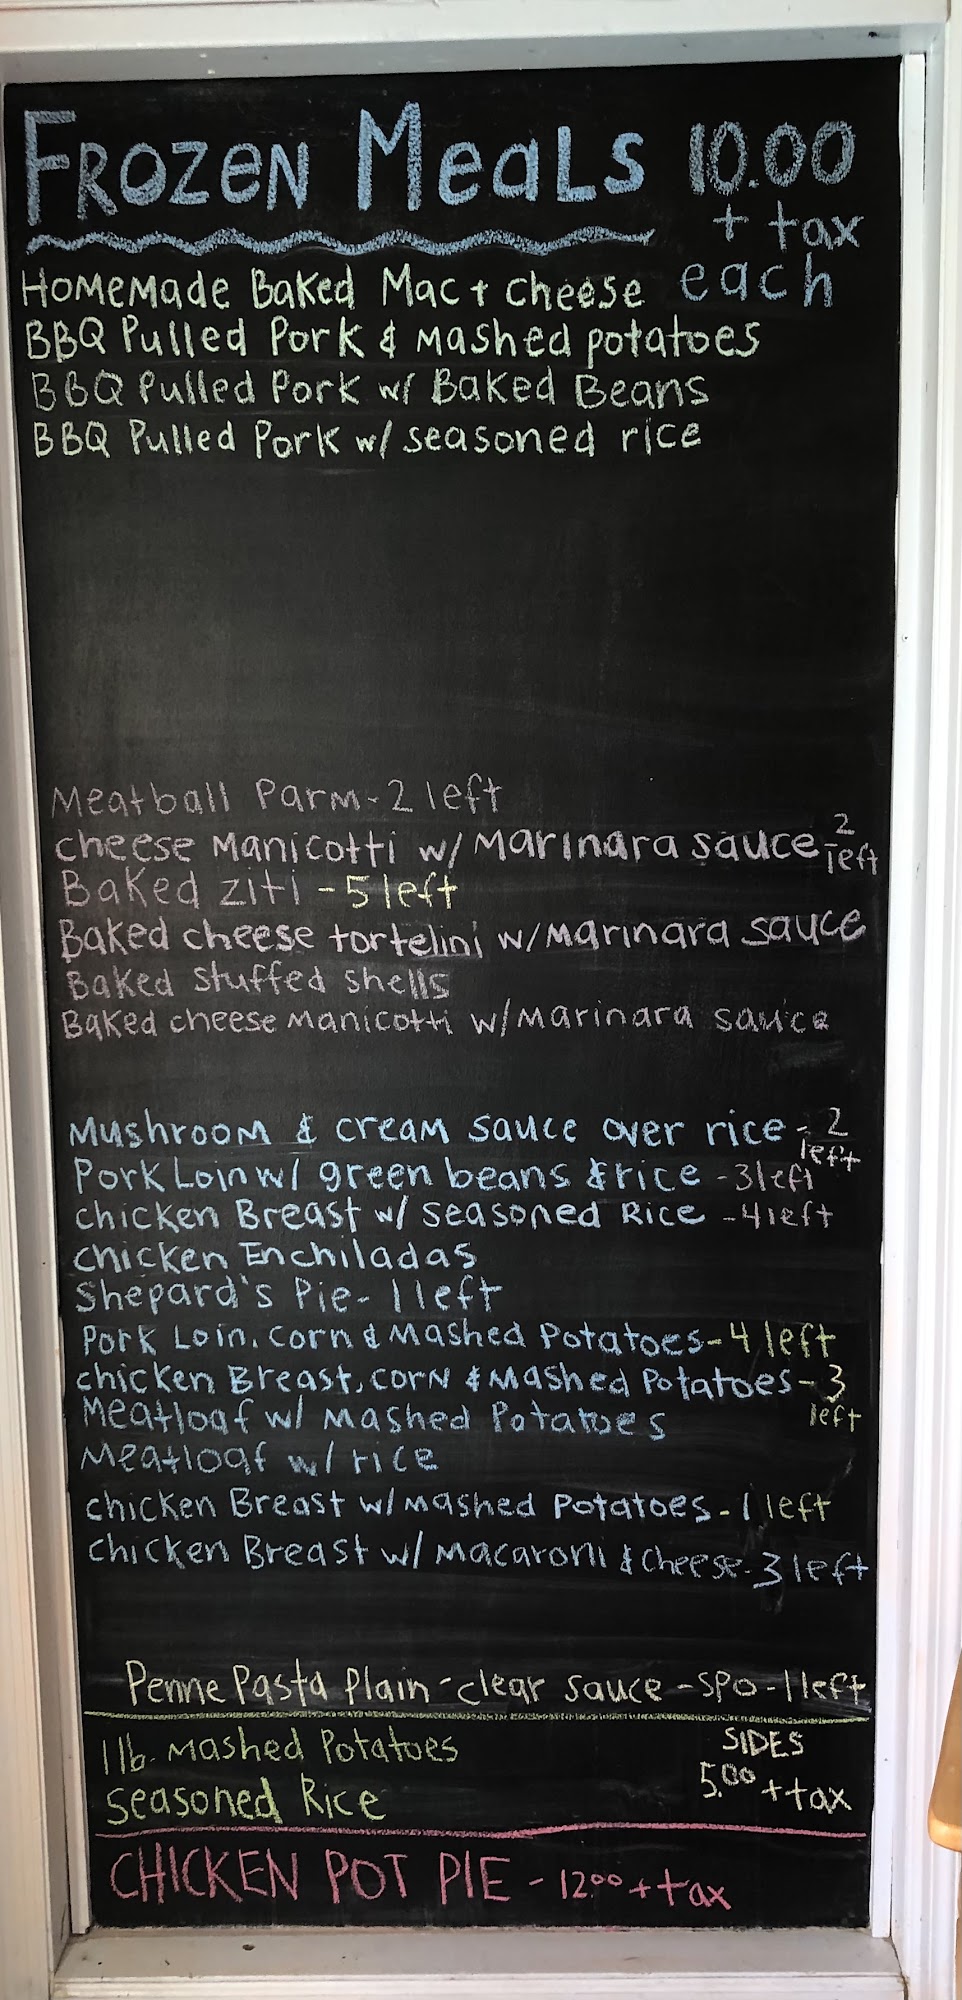 FROZEN MeaLS 10.00
+ tax
each
HOMeMade Baked Mac + cheese
BBQ Pulled Pork & Mashed potatoes
BBQ Pulled Pork w/ Baked Beans
BBQ Pulled Pork w/ seasoned rice
Meatball Parm - 2 left
cheese Manicotti w/ Marinara sauce - 2 left
Baked ziti - 5 left
Baked cheese tortelini w/ Marinara sauce
Baked Stuffed Shells
Baked cheese Manicotti w/ Marinara sauce
Mushroom & cream sauce over rice - 2 left
Pork Loin w/ green beans & rice - 3 left
chicken Breast w/ Seasoned Rice - 4 left
chicken Enchiladas
Shepard's Pie - 1 left
Pork Loin, corn & Mashed Potatoes - 4 left
chicken Breast, corn & Mashed Potatoes - 3 left
Meatloaf w/ Mashed Potatoes
Meatloaf w/ rice
chicken Breast w/ Mashed Potatoes - 1 left
chicken Breast w/ Macaroni & cheese - 3 left
Penne Pasta Plain - clear sauce - SPO - 1 left
1 lb. Mashed Potatoes
Seasoned Rice
SIDES
5.00 + tax
CHICKEN POT PIE - 12 00 + tax